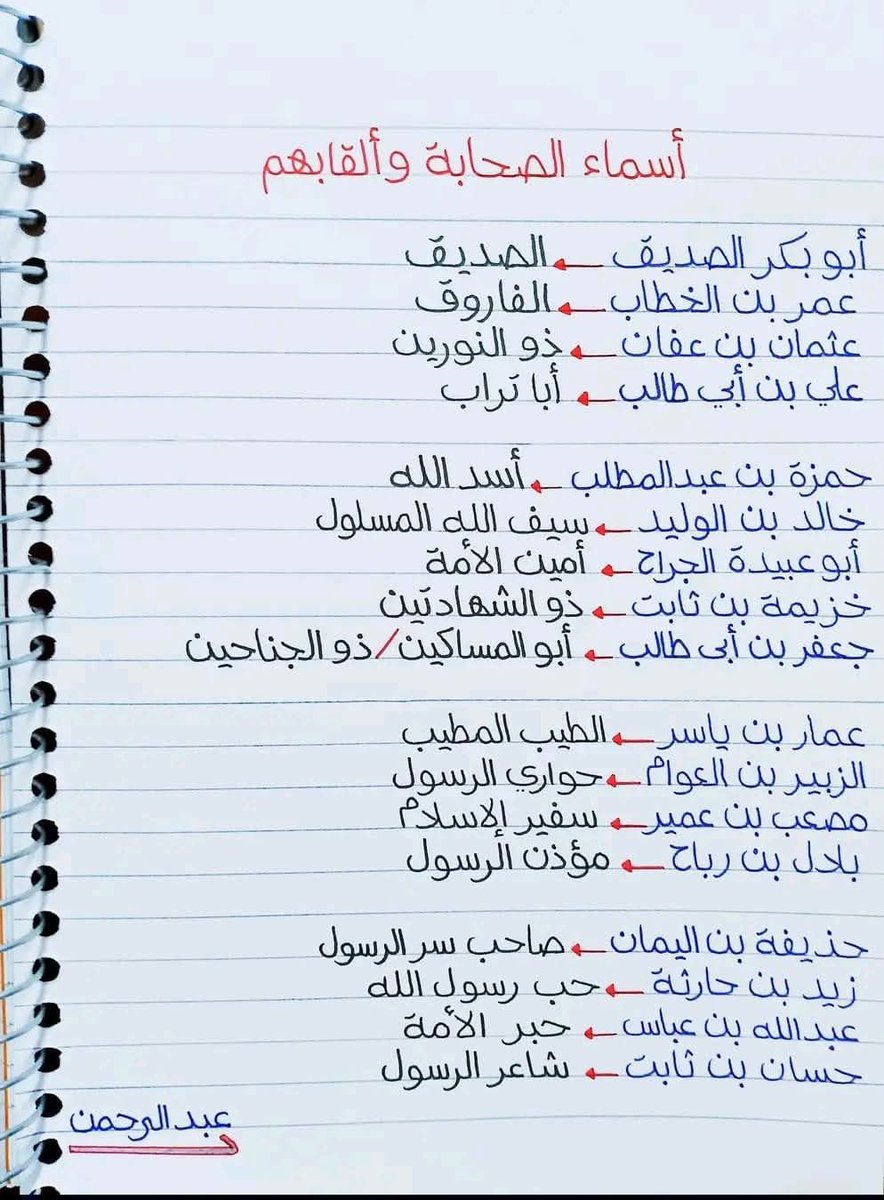 أسماء الصحابة وألقابهم
أبو بكر الصديق ← الصديق
عمر بن الخطاب ← الفاروق
عثمان بن عفان ← ذو النورين
علي بن أبي طالب ← أبا تراب
حمزة بن عبدالمطلب ← أسد الله
خالد بن الوليد ← سيف الله المسلول
أبو عبيدة الجراح ← أمين الأمة
خزيمة بن ثابت ← ذو الشهادتين
جعفر بن أبى طالب ← أبو المساكين/ذو الجناحين
عمار بن ياسر ← الطيب المطيب
الزبير بن العوام ← حواري الرسول
مصعب بن عمير ← سفير الإسلام
بلال بن رباح ← مؤذن الرسول
حذيفة بن اليمان ← صاحب سر الرسول
زيد بن حارثة ← حب رسول الله
عبدالله بن عباس ← حبر الأمة
حسان بن ثابت ← شاعر الرسول
عبدالرحمن